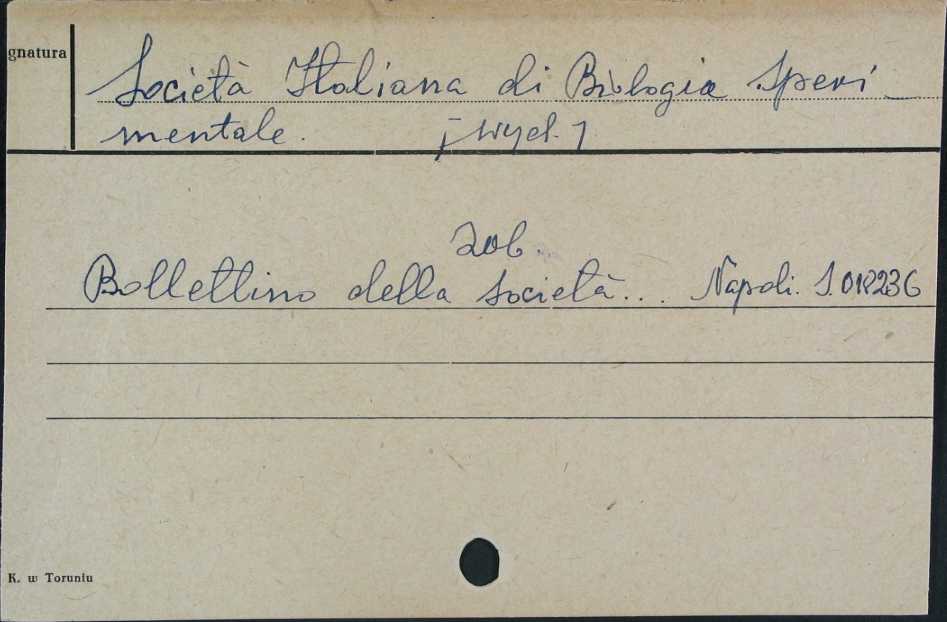 gnatura
Società Italiana di Biologia Speri-
mentale. [wyd.]
Zob.
Bollettino della Società... Napoli. S.012236
K. w Toruniu